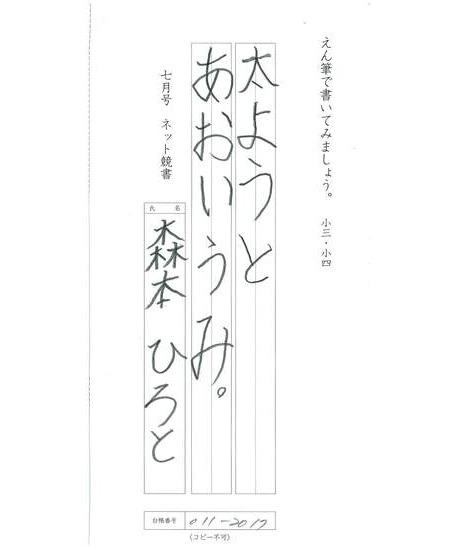 えん筆で書いてみましょう。 小三・小四
太ようと
あおいうみ。
七月号 ネット競書
氏 名
森本 ひろと
台帳番号 011-2017
(コピー不可)